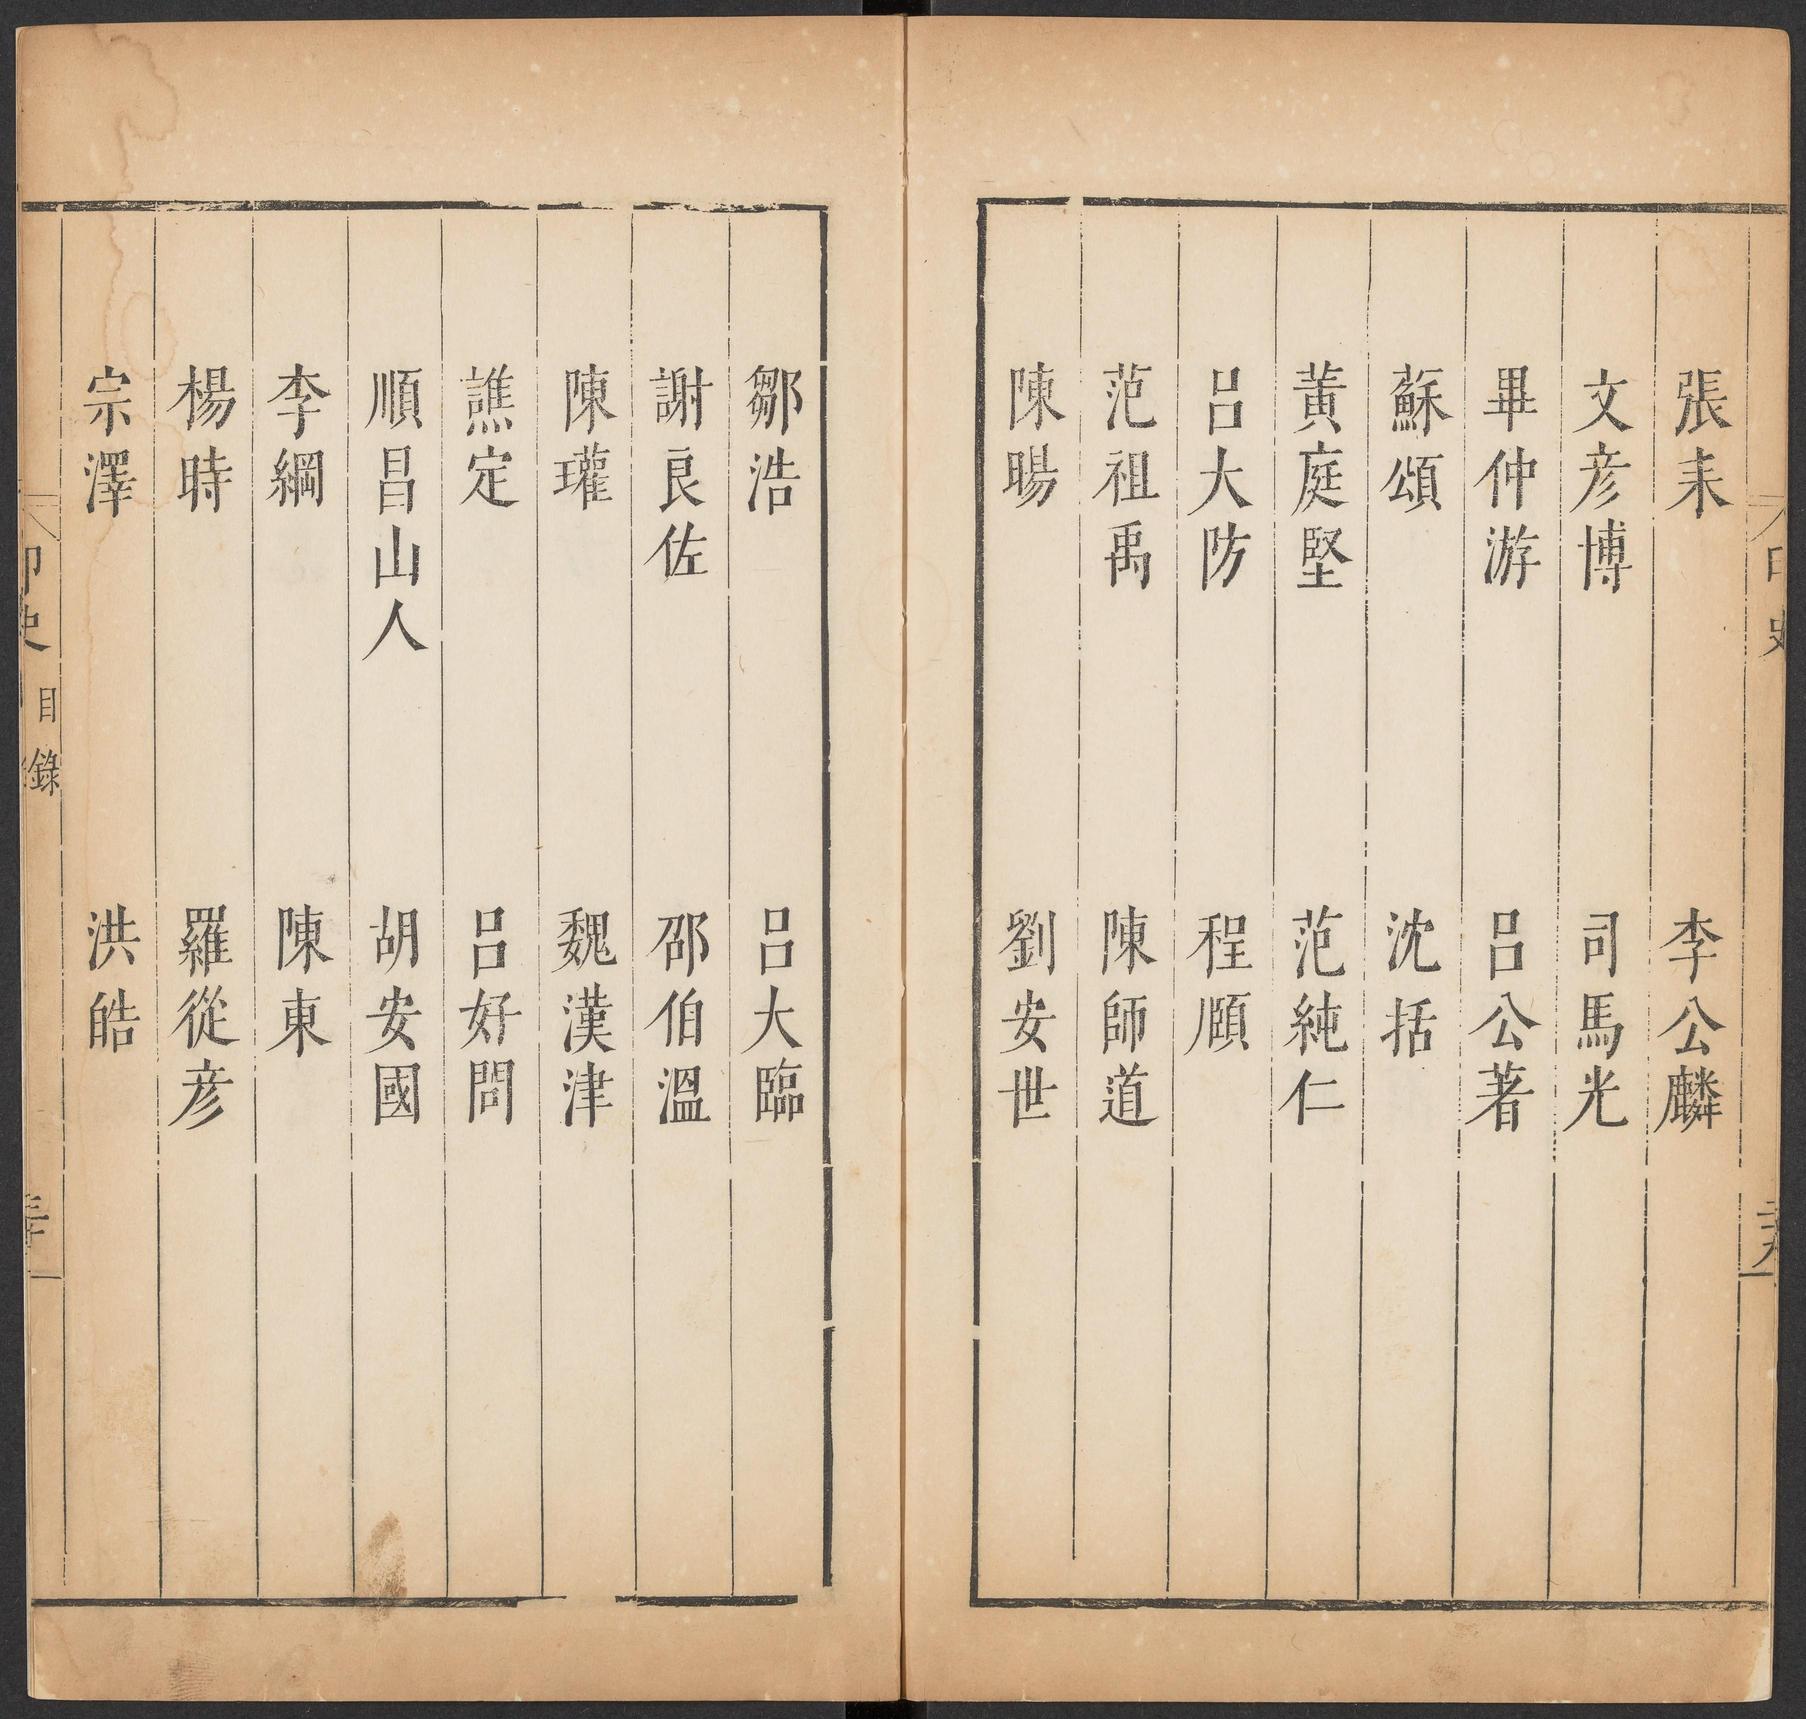 張耒 李公麟
文彦博 司馬光
畢仲游 呂公著
蘇頌 沈括
黃庭堅 范純仁
呂大防 程頤
范祖禹 陳師道
陳暘 劉安世
鄒浩 呂大臨
謝良佐 邵伯溫
陳瓘 魏漢津
譙定 呂好問
順昌山人 胡安國
李綱 陳東
楊時 羅從彦
宗澤 洪皓
印史 目錄